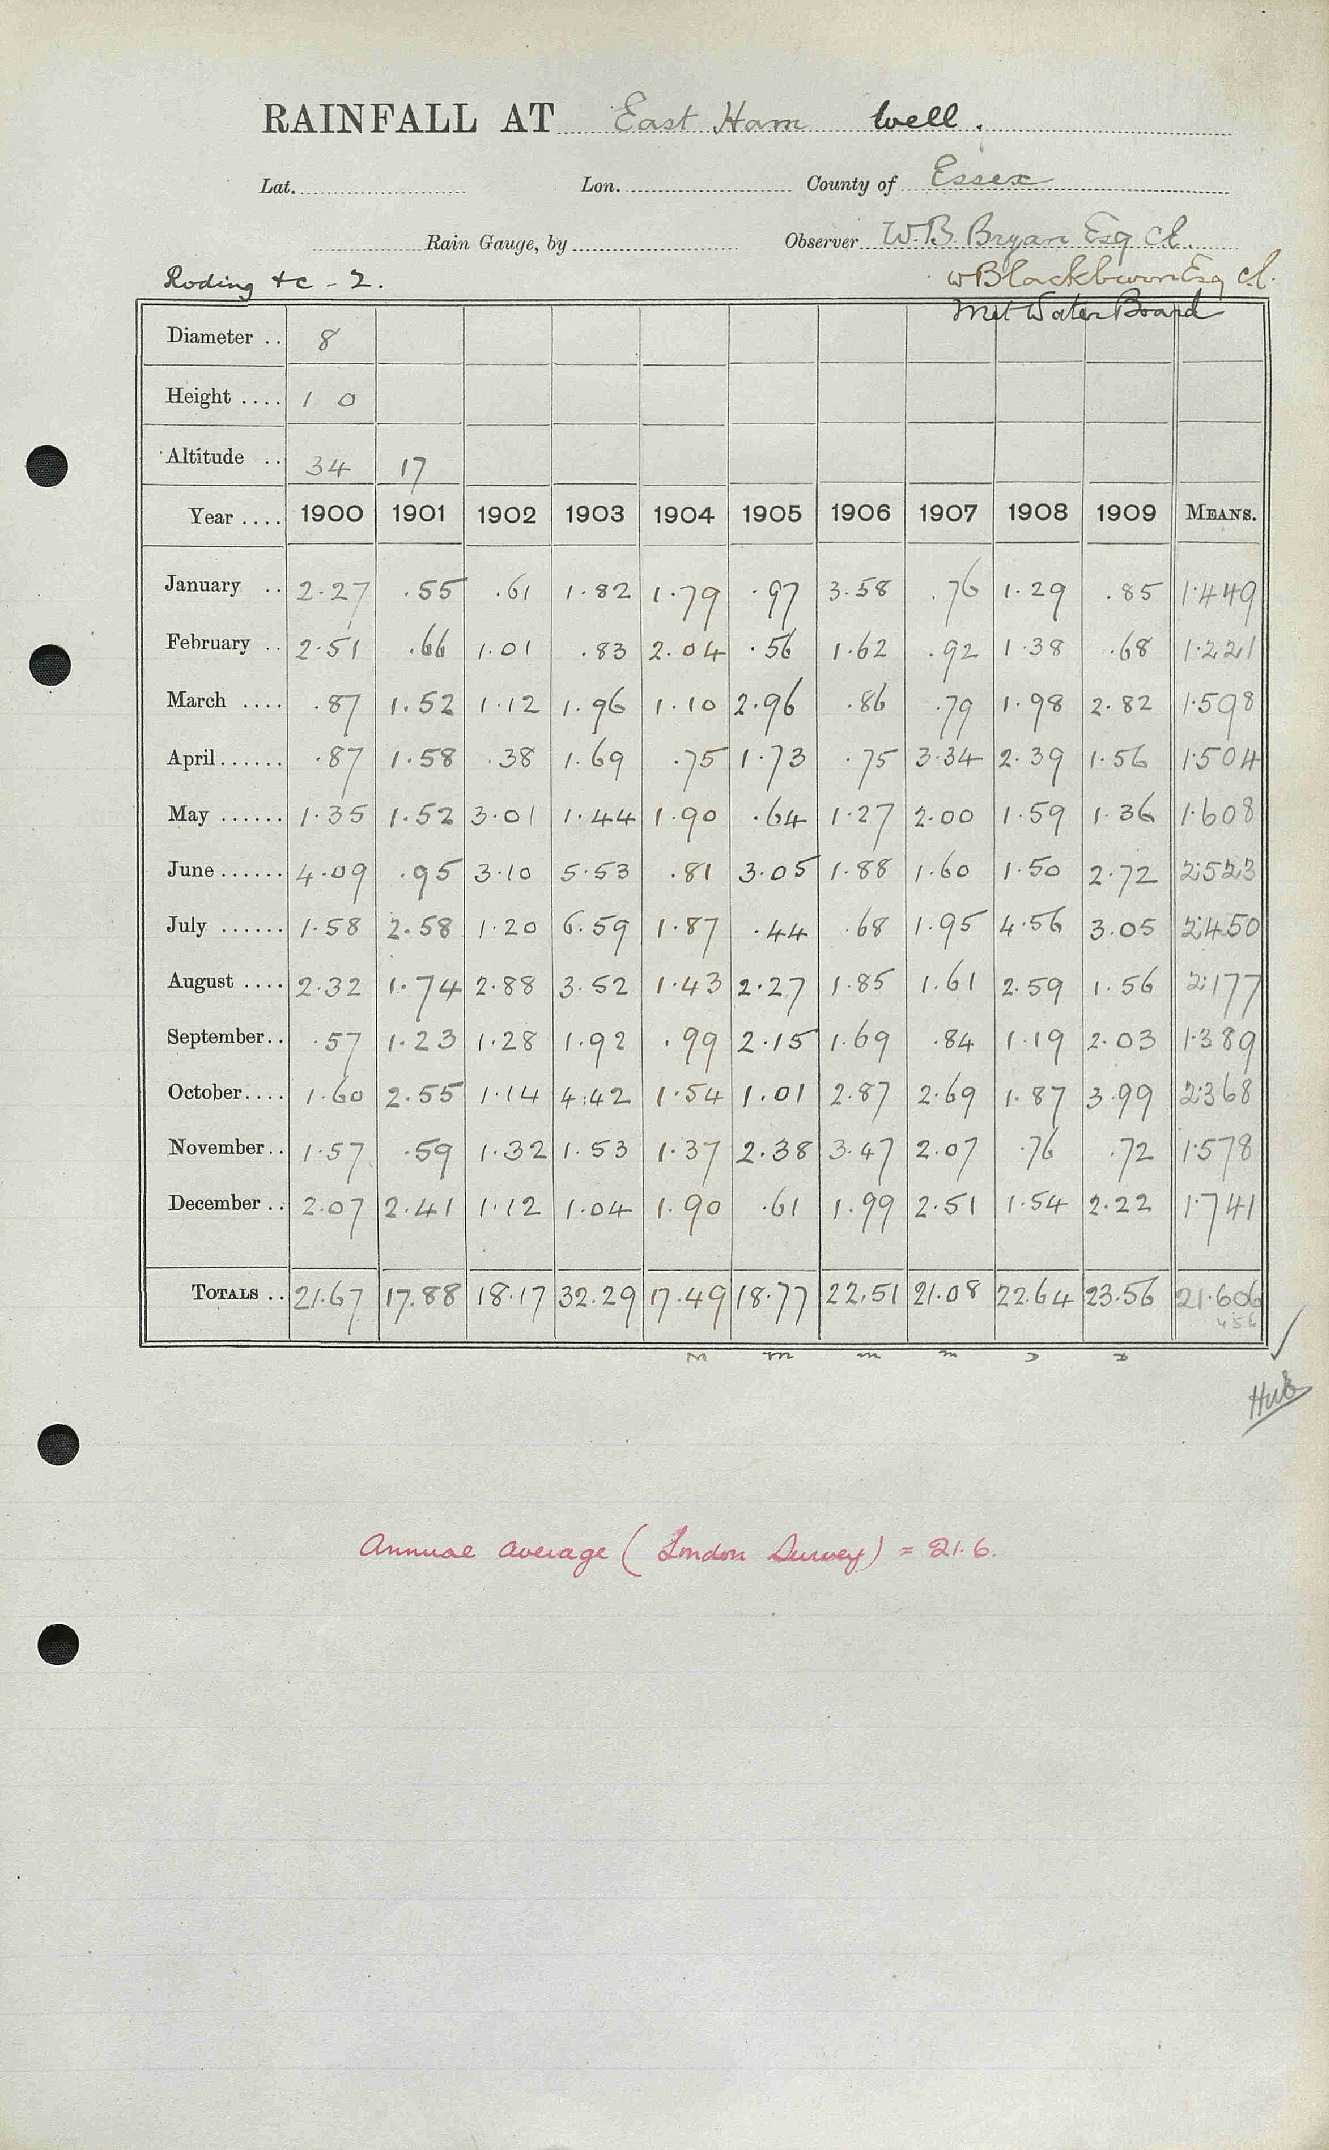 RAINFALL AT East Ham Well.
Lat. Lon. County of Essex
Rain Gauge, by Observer W.B. Bryan Esq
Roding &c - 2. W Blackburn Esq
Met Water Board
Diameter .. 8
Height .... 1 0
Altitude .. 34 17
Year .... 1900 1901 1902 1903 1904 1905 1906 1907 1908 1909 MEANS.
January .. 2.27 .55 .61 1.82 1.79 .97 3.58 .76 1.29 .85 1.449
February .. 2.51 .66 1.01 .83 2.04 .56 1.62 .92 1.38 .68 1.221
March .... .87 1.52 1.12 1.96 1.10 2.96 .86 .79 1.98 2.82 1.598
April...... .87 1.58 .38 1.69 .75 1.73 .75 3.34 2.39 1.56 1.504
May ...... 1.35 1.52 3.01 1.44 1.90 .64 1.27 2.00 1.59 1.36 1.608
June...... 4.09 .95 3.10 5.53 .81 3.05 1.88 1.60 1.50 2.72 2.523
July ...... 1.58 2.58 1.20 6.59 1.87 .44 .68 1.95 4.56 3.05 2.450
August .... 2.32 1.74 2.88 3.52 1.43 2.27 1.85 1.61 2.59 1.56 2.177
September.. .57 1.23 1.28 1.92 .99 2.15 1.69 .84 1.19 2.03 1.389
October.... 1.60 2.55 1.14 4.42 1.54 1.01 2.87 2.69 1.87 3.99 2.368
November.. 1.57 .59 1.32 1.53 1.37 2.38 3.47 2.07 .76 .72 1.578
December .. 2.07 2.41 1.12 1.04 1.90 .61 1.99 2.51 1.54 2.22 1.741
TOTALS .. 21.67 17.88 18.17 32.29 17.49 18.77 22.51 21.08 22.64 23.56 21.606
456
M m m m
Annual average (London Survey) = 21.6.